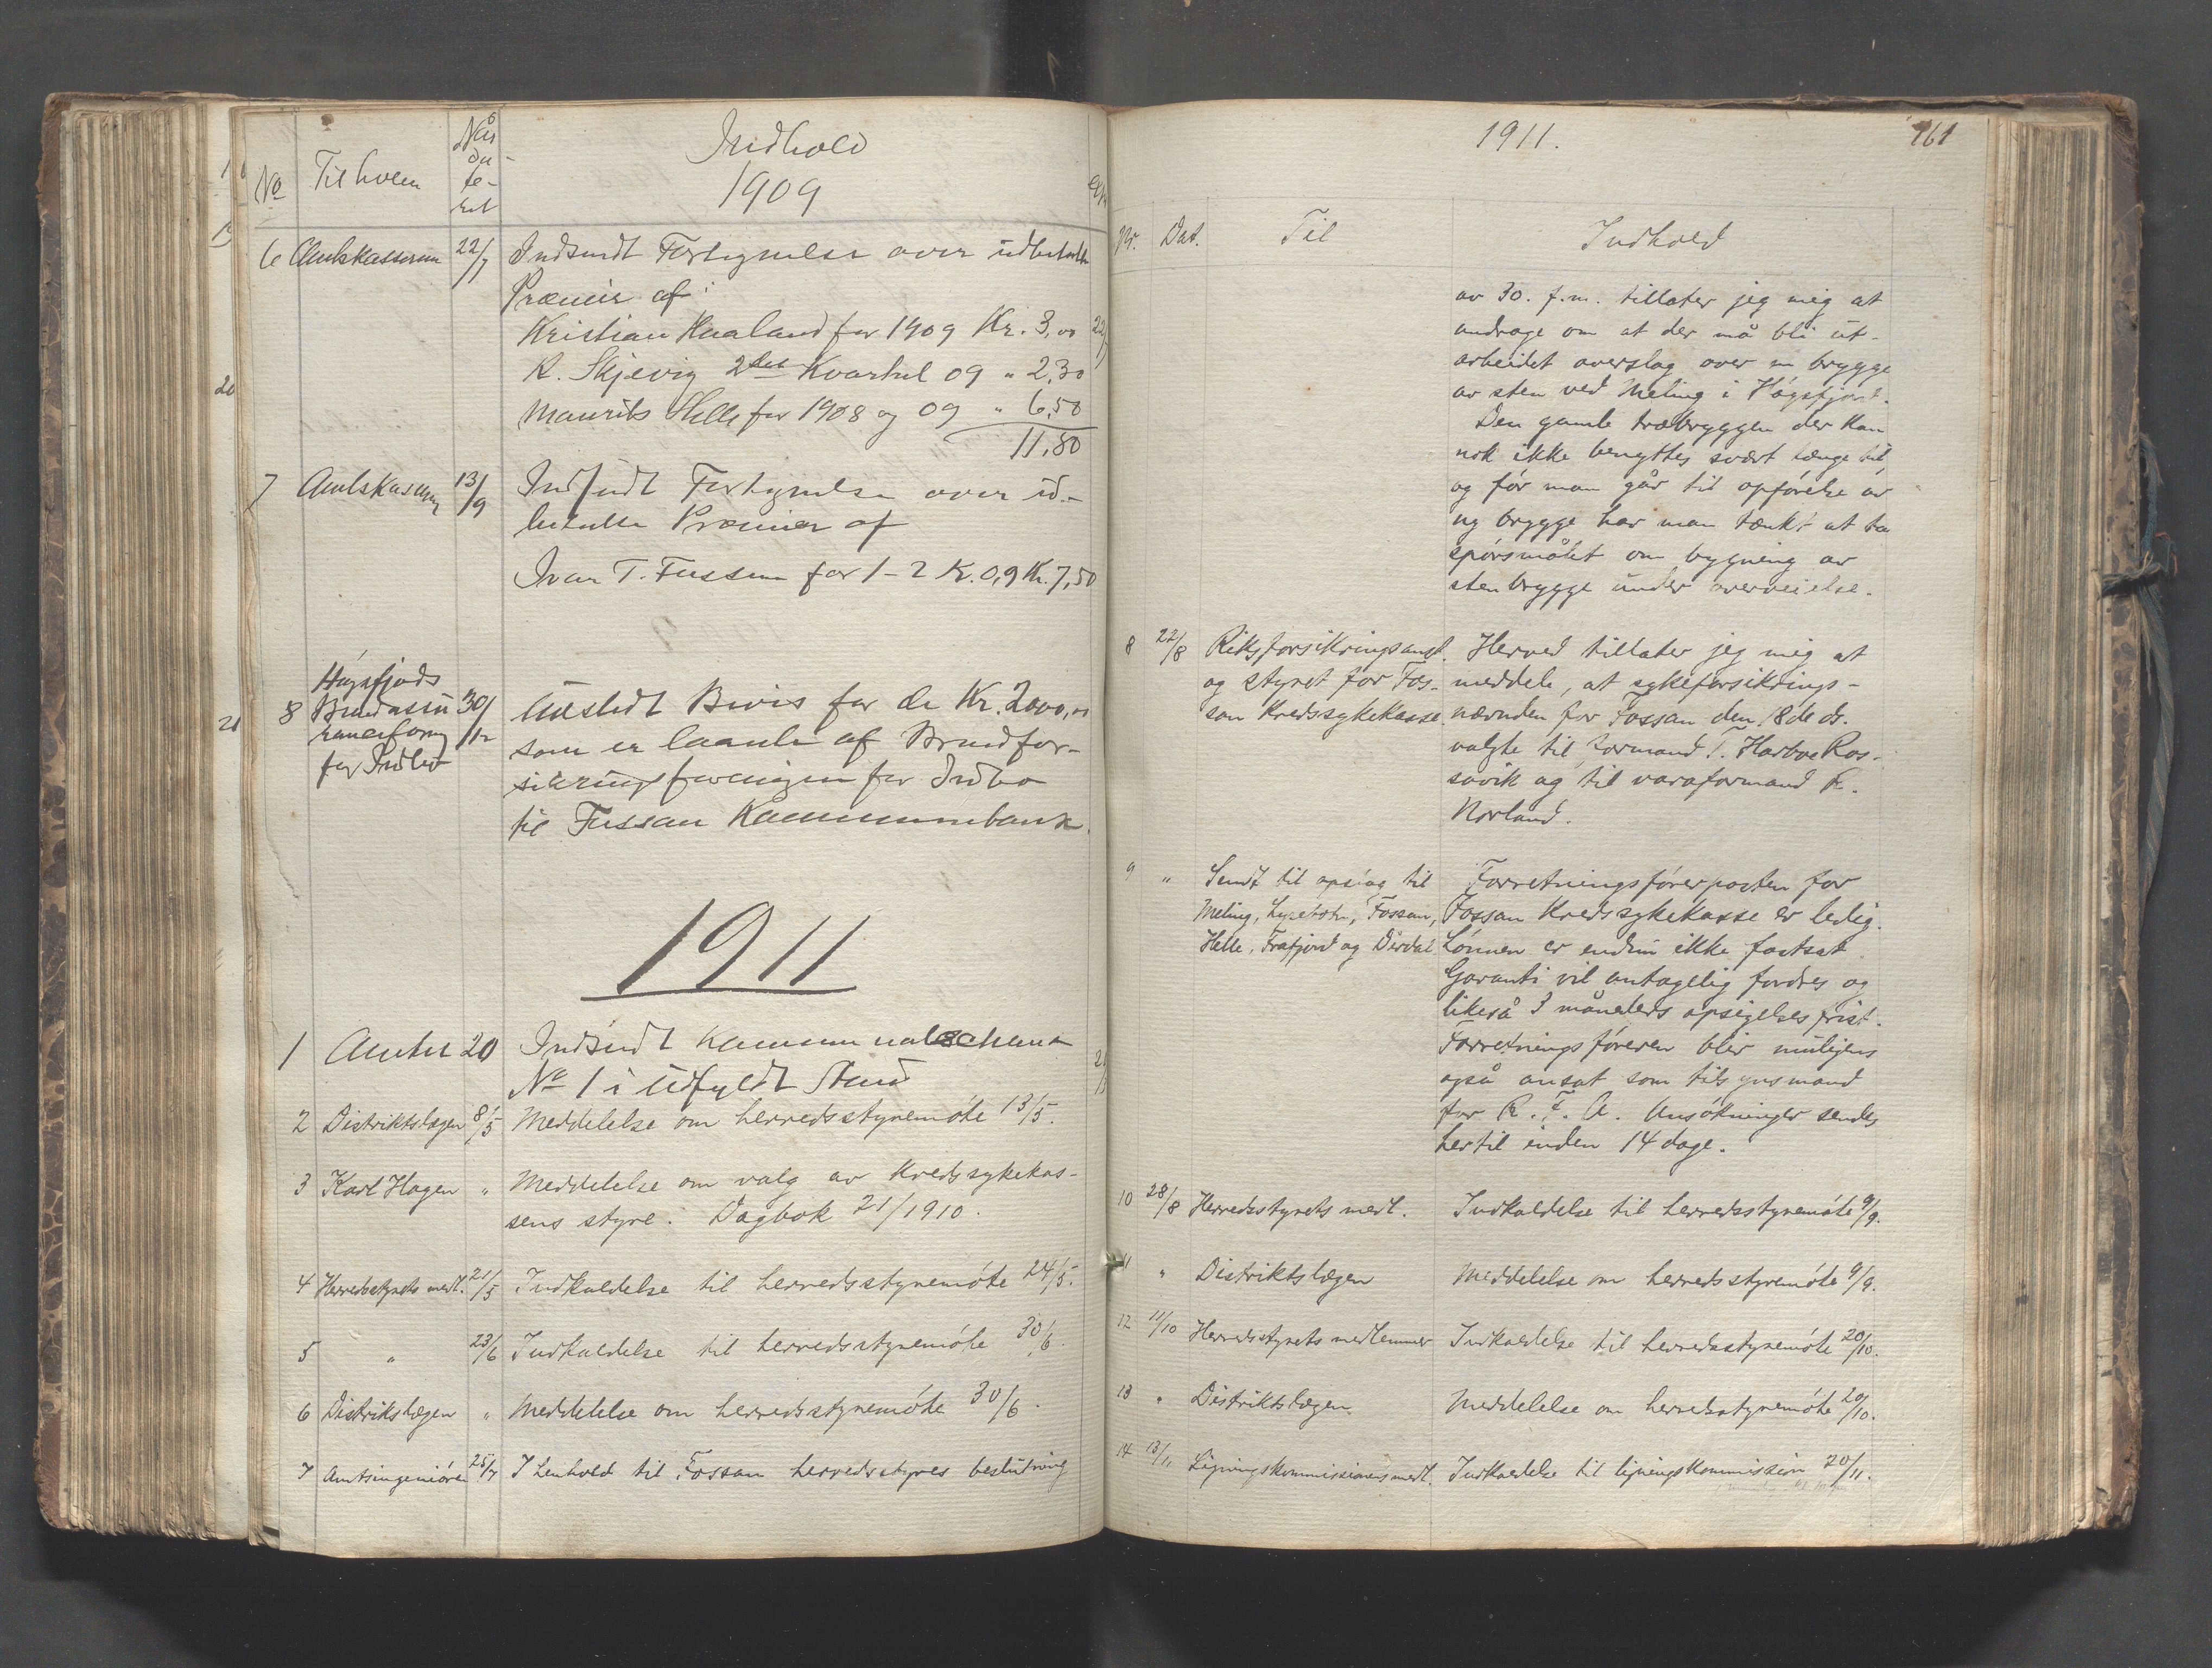 No Til hvem Når da- te- ret Indhold
1909
6 Amtskasseren 22/7 Indsendt Fortegnelse over udbetalte
Præmier af:
Kristian Haaland for 1909 Kr. 3,00 22/7
R. Skjevig 2det Kvartal 09 " 2,30
Maurits Helle for 1908 og 09 " 6,50
11,80
7 Amtskasseren 13/9 Indsendt Fortegnelse over ud-
betalte Præmier af
Ivar T. Fossan for 1-2 K. 09 Kr. 7,50
Høgsfjords
8 30/12 Udstedt Bevis for de Kr. 2000,00
som er laante af Brandfor-
for Indbo
sikringsforeningen for Indbo
til Fossan Kommunebank.
1911
1 Amtet 20 Indsendt Kommunalschema
No 1 i udfyldt Stand
2 Distriktslægen 8/5 Meddelelse om herredsstyremöte 13/5.
3 Karl Hagen " Meddelelse om valg av Kredssykekas-
sens styre. Dagbok 21/1910.
4 Herredsstyrets medl. 21/5 Indkaldelse til herredsstyremöte 24/5.
5 " 23/6 Indkaldelse til herredsstyremöte 30/6.
6 Distrikslægen " Meddelelse om herredsstyremöte 30/6.
7 Amtsingeniören 25/7 I henhold til Fossan herredsstyres beslutning
1911. 161
Nr. Dat. Til Indhold
av 30. f.m. tillater jeg mig at
andrage om at der må bli ut-
arbeidet overslag over en brygge
av sten ved Meling i Høgsfjord.
Den gamle træbryggen der kan
nok ikke benyttes svært længe til,
og för man går til opförelse av
ny brygge har man tænkt at ta
spörsmålet om bygning av
stenbrygge under overveielse.
8 22/8 Riksforsikringsanst. Herved tillater jeg mig at
og styret for Fos- meddele, at sykeforsikrings-
san Kredssykekasse. nævnden for Fossan den 18de ds.
valgte til formand I. Harboe Ros-
savik og til varaformand K.
Norland.
9 " Sendt til opslag til Forretningsförerposten for
Meling, Lysebotn, Fossan, Fossan Kredssykekasse er ledig.
Helle, Frafjord og Dirdal Lönnen er endnu ikke fastsat.
Garanti vil antagelig fordres og
likeså 3 måneders opsigelsesfrist.
Forretningsföreren blir muligens
også ansat som tilsynsmand
for R. F. A. Ansökninger sendes
hertil inden 14 dage.
10 28/8 Herredsstyrets medl. Indkaldelse til herredsstyremöte 9/9.
11 " Distriktslægen Meddelelse om herredsstyremöte 9/9.
12 11/10 Herredsstyrets medlemmer Indkaldelse til herredsstyremöte 20/10.
13 " Distriktslægen Meddelelse om herredsstyremöte 20/10.
14 13/11 Ligningskommissionens medl. Indkaldelse til ligningskommission 20/11.